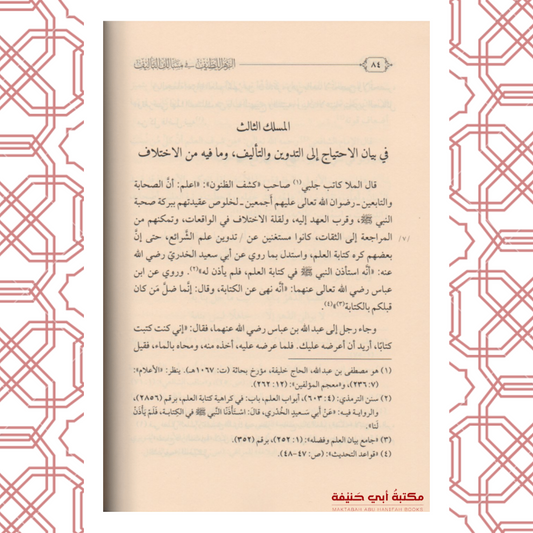 ٨٤
الزهر اللطيف في مسالك التأليف
المسلك الثالث
في بيان الاحتياج إلى التدوين والتأليف، وما فيه من الاختلاف
قال الملا كاتب جلبي(١) صاحب «كشف الظنون»: «اعلم: أنَّ الصحابة
والتابعين ـ رضوان الله تعالى عليهم أجمعين ـ لخلوص عقيدتهم ببركة صحبة
النبي ﷺ، وقرب العهد إليه، ولقلة الاختلاف في الواقعات، وتمكنهم من
المراجعة إلى الثقات، كانوا مستغنين عن / تدوين علم الشَّرائع، حتى إنَّ
/٧/
بعضهم كره كتابة العلم، واستدل بما روي عن أبي سعيد الخدريّ رضي الله
عنه: «أنَّه استأذن النبي ﷺ في كتابة العلم، فلم يأذن له»(٢). وروي عن ابن
عباس رضي الله تعالى عنهما: «أنَّه نهى عن الكتابة، وقال: إنَّما ضلَّ مَن كان
قبلكم بالكتابة(٣)»(٤).
وجاء رجل إلى عبد الله بن عباس رضي الله عنهما، فقال: «إني كنت كتبت
كتابًا، أريد أن أعرضه عليك. فلما عرضه عليه، أخذه منه، ومحاه بالماء، فقيل
(١) هو مصطفى بن عبد الله، الحاج خليفة، مؤرخ بحاثة (ت: ١٠٦٧هـ). ينظر: «الأعلام»:
(٧: ٢٣٦)، و«معجم المؤلفين»: (١٢: ٢٦٢).
(٢) سنن الترمذي: (٤: ٦٠٣)، أبواب العلم، باب: في كراهية كتابة العلم، برقم (٢٨٥٦)،
والرواية فيه: «عَنْ أَبي سَعِيدٍ الخُدْري، قالَ: اسْتَأْذَنَّا النَّبي ﷺ في الكِتابَةِ، فَلَمْ يَأْذَنْ
لَنا».
(٣) «جامع بيان العلم وفضله»: (١: ٢٥٢)، برقم (٣٥٢).
(٤) «قواعد التحديث»: (ص: ٤٧-٤٨).
مكتبة أبي حنيفة
MAKTABAH ABU HANIFAH BOOKS